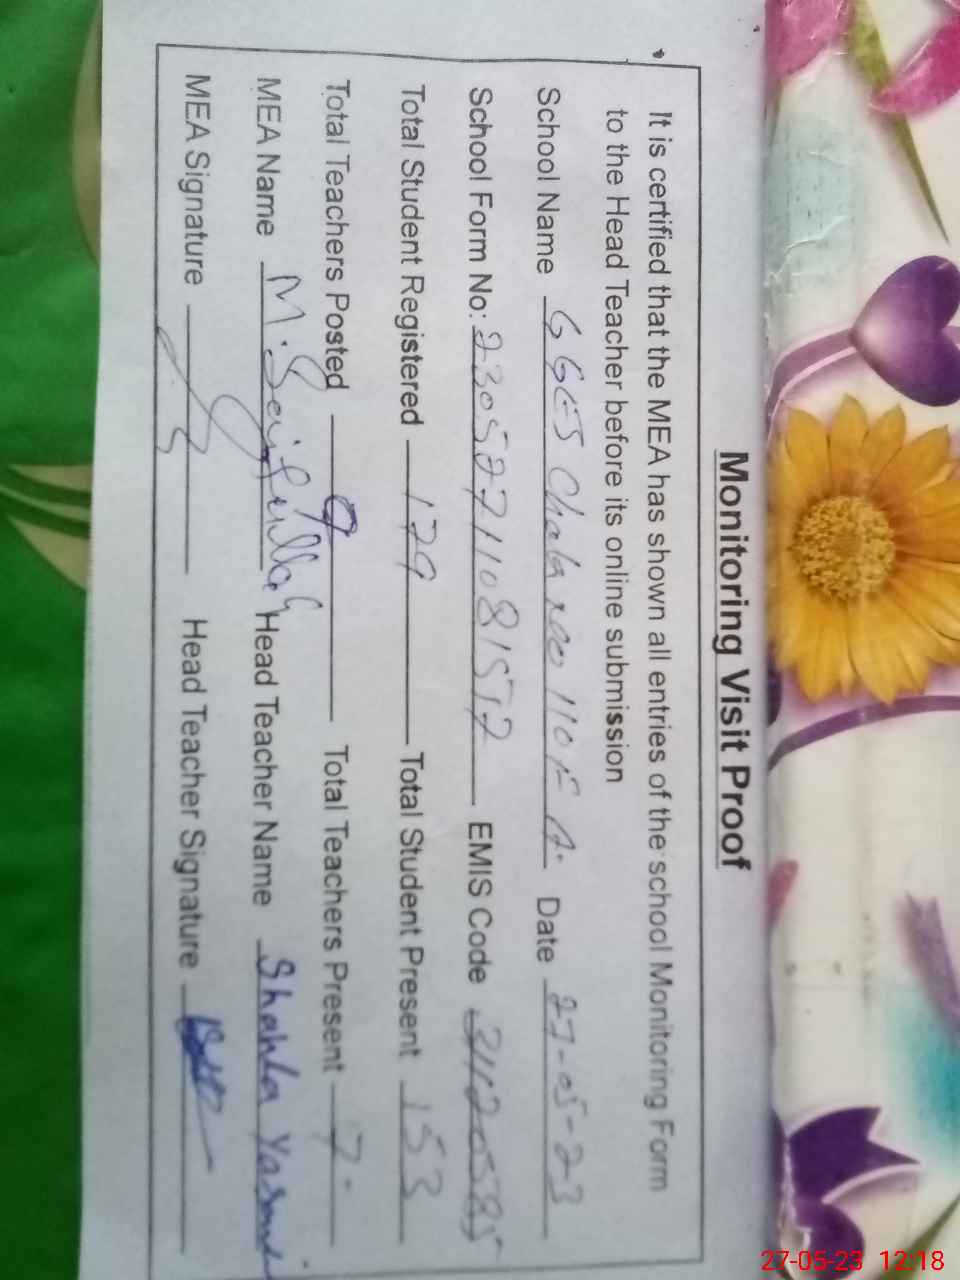 Monitoring Visit Proof
It is certified that the MEA has shown all entries of the school Monitoring Form
to the Head Teacher before its online submission
School Name GGES Chak no 110 F A. Date 27-05-23
School Form No: 23052711081572 EMIS Code 31120585
Total Student Registered 179 Total Student Present 153
Total Teachers Posted 9 Total Teachers Present 7
MEA Name M. Saifullah Head Teacher Name Shahla Yasmeen
MEA Signature Head Teacher Signature
27-05-23 12:18